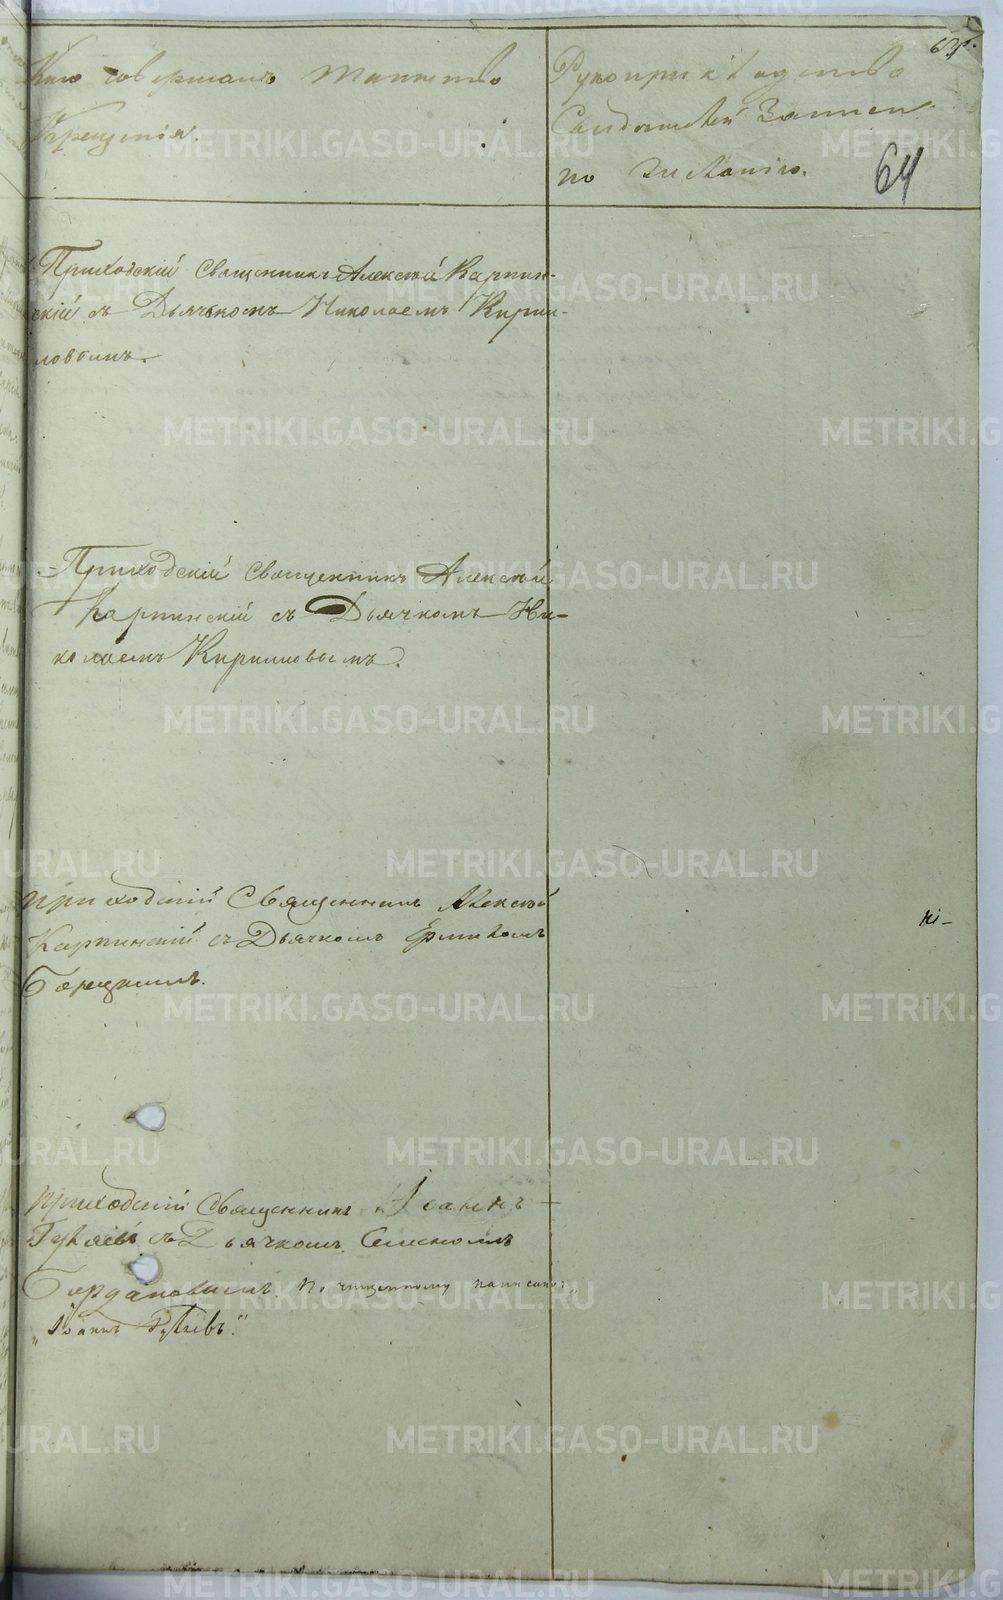 63.
Кто совершалъ таинство
Крещенія.
Рукоприкладство
Свидѣтелей Записи
по желанію.
64
Приходскій Священникъ Алексѣй Карпин-
скій съ Дьячкомъ Николаемъ Кирил-
ловымъ.
Приходскій Священникъ Алексѣй
Карпинскій съ Дьячкомъ Ни-
колаемъ Кирилловымъ.
приходскій Священникъ Алексѣй
Карпинскій съ Дьячкомъ
кі-
приходскій Священникъ Іоаннъ
съ Дьячкомъ Симономъ
Богдановымъ. По чищенному написано:
„Іоаннъ
METRIKI.GASO-URAL.RU